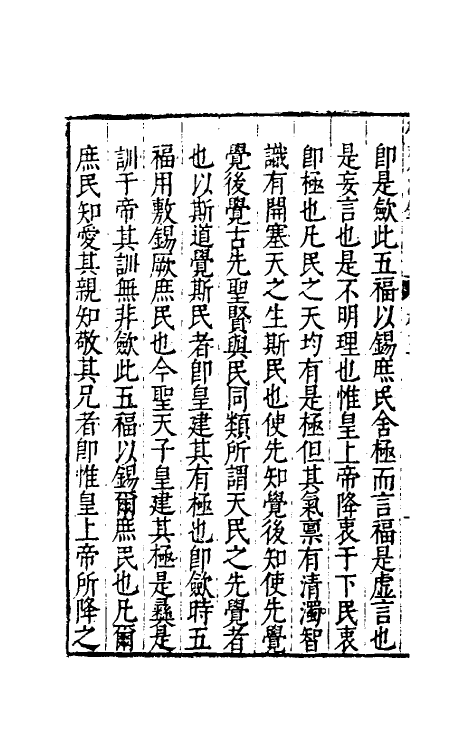 即是歛此五福以錫庶民舍極而言福是虚言也
是妄言也是不明理也惟皇上帝降衷于下民衷
即極也凡民之天均有是極但其氣禀有清濁智
識有開塞天之生斯民也使先知覺後知使先覺
覺後覺古先聖賢與民同類所謂天民之先覺者
也以斯道覺斯民者即皇建其有極也即歛時五
福用敷錫厥庶民也今聖天子皇建其極是彝是
訓于帝其訓無非歛此五福以錫爾庶民也凡爾
庶民知愛其親知敬其兄者即惟皇上帝所降之